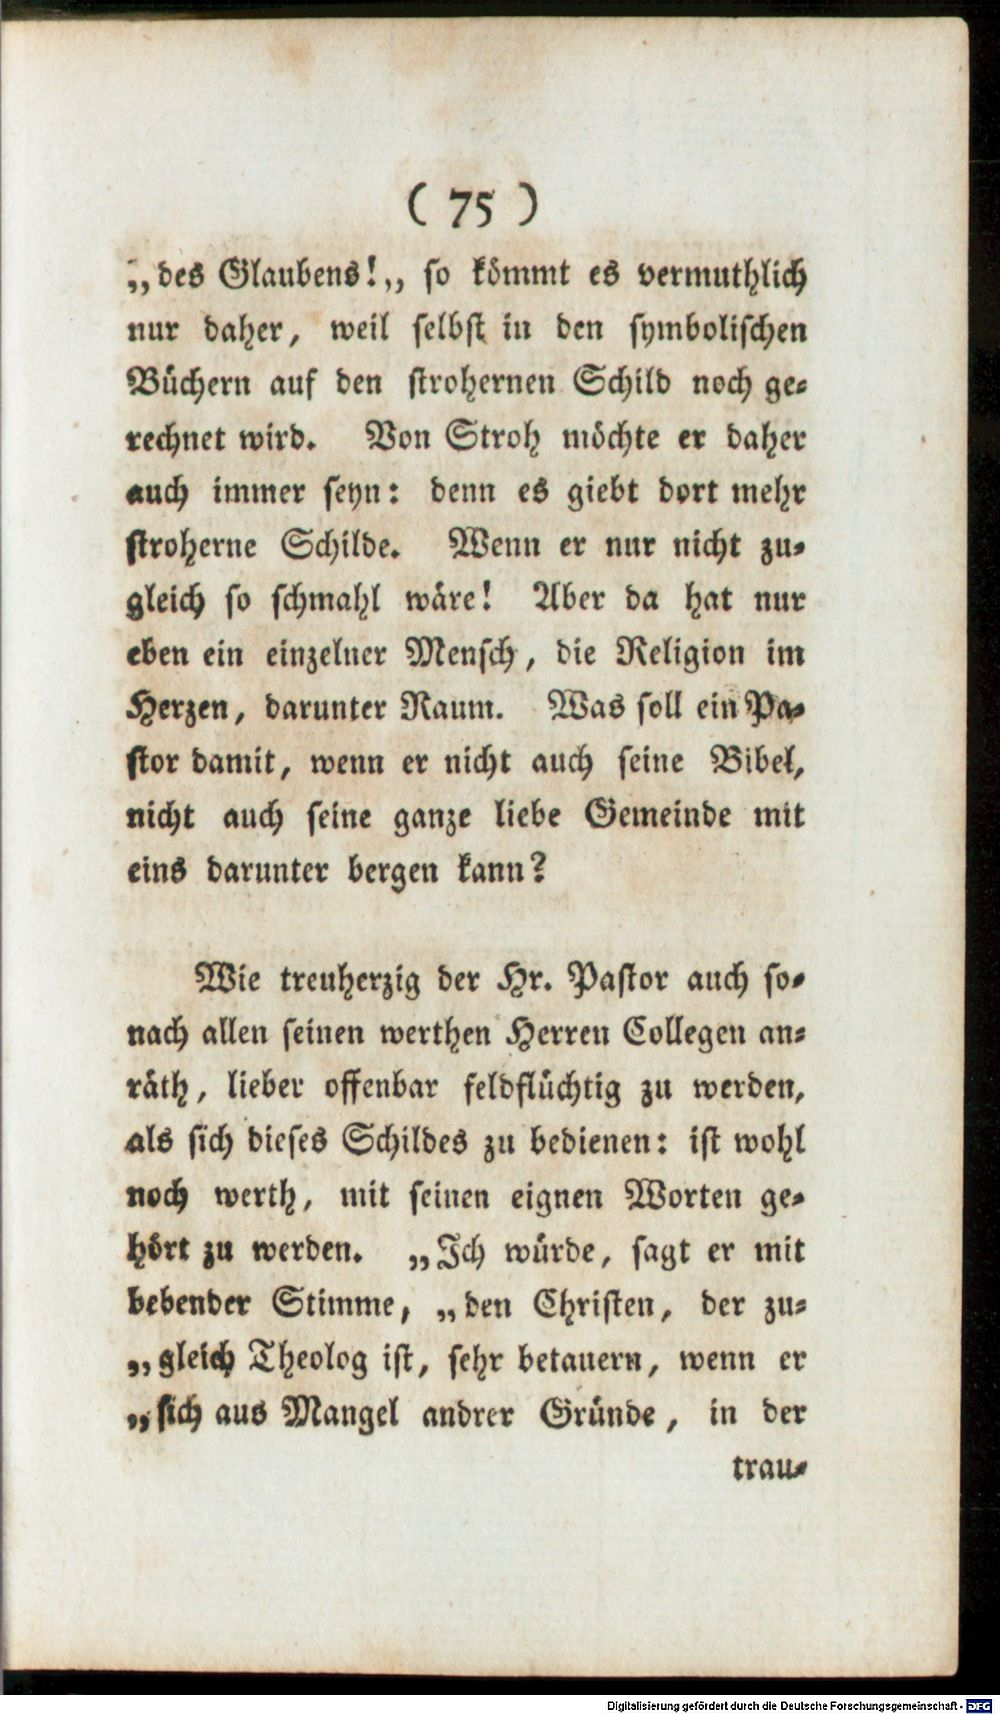 ( 75 )
„des Glaubens!„ so kömmt es vermuthlich
nur daher, weil selbst in den symbolischen
Büchern auf den strohernen Schild noch ge-
rechnet wird. Von Stroh möchte er daher
auch immer seyn: denn es giebt dort mehr
stroherne Schilde. Wenn er nur nicht zu-
gleich so schmahl wäre! Aber da hat nur
eben ein einzelner Mensch, die Religion im
Herzen, darunter Raum. Was soll ein Pa-
stor damit, wenn er nicht auch seine Bibel,
nicht auch seine ganze liebe Gemeinde mit
eins darunter bergen kann?
Wie treuherzig der Hr. Pastor auch so-
nach allen seinen werthen Herren Collegen an-
räth, lieber offenbar feldflüchtig zu werden,
als sich dieses Schildes zu bedienen: ist wohl
noch werth, mit seinen eignen Worten ge-
hört zu werden. „Ich würde, sagt er mit
bebender Stimme, „den Christen, der zu-
„gleich Theolog ist, sehr betauern, wenn er
„sich aus Mangel andrer Gründe, in der
trau-
Digitalisierung gefördert durch die Deutsche Forschungsgemeinschaft - DFG